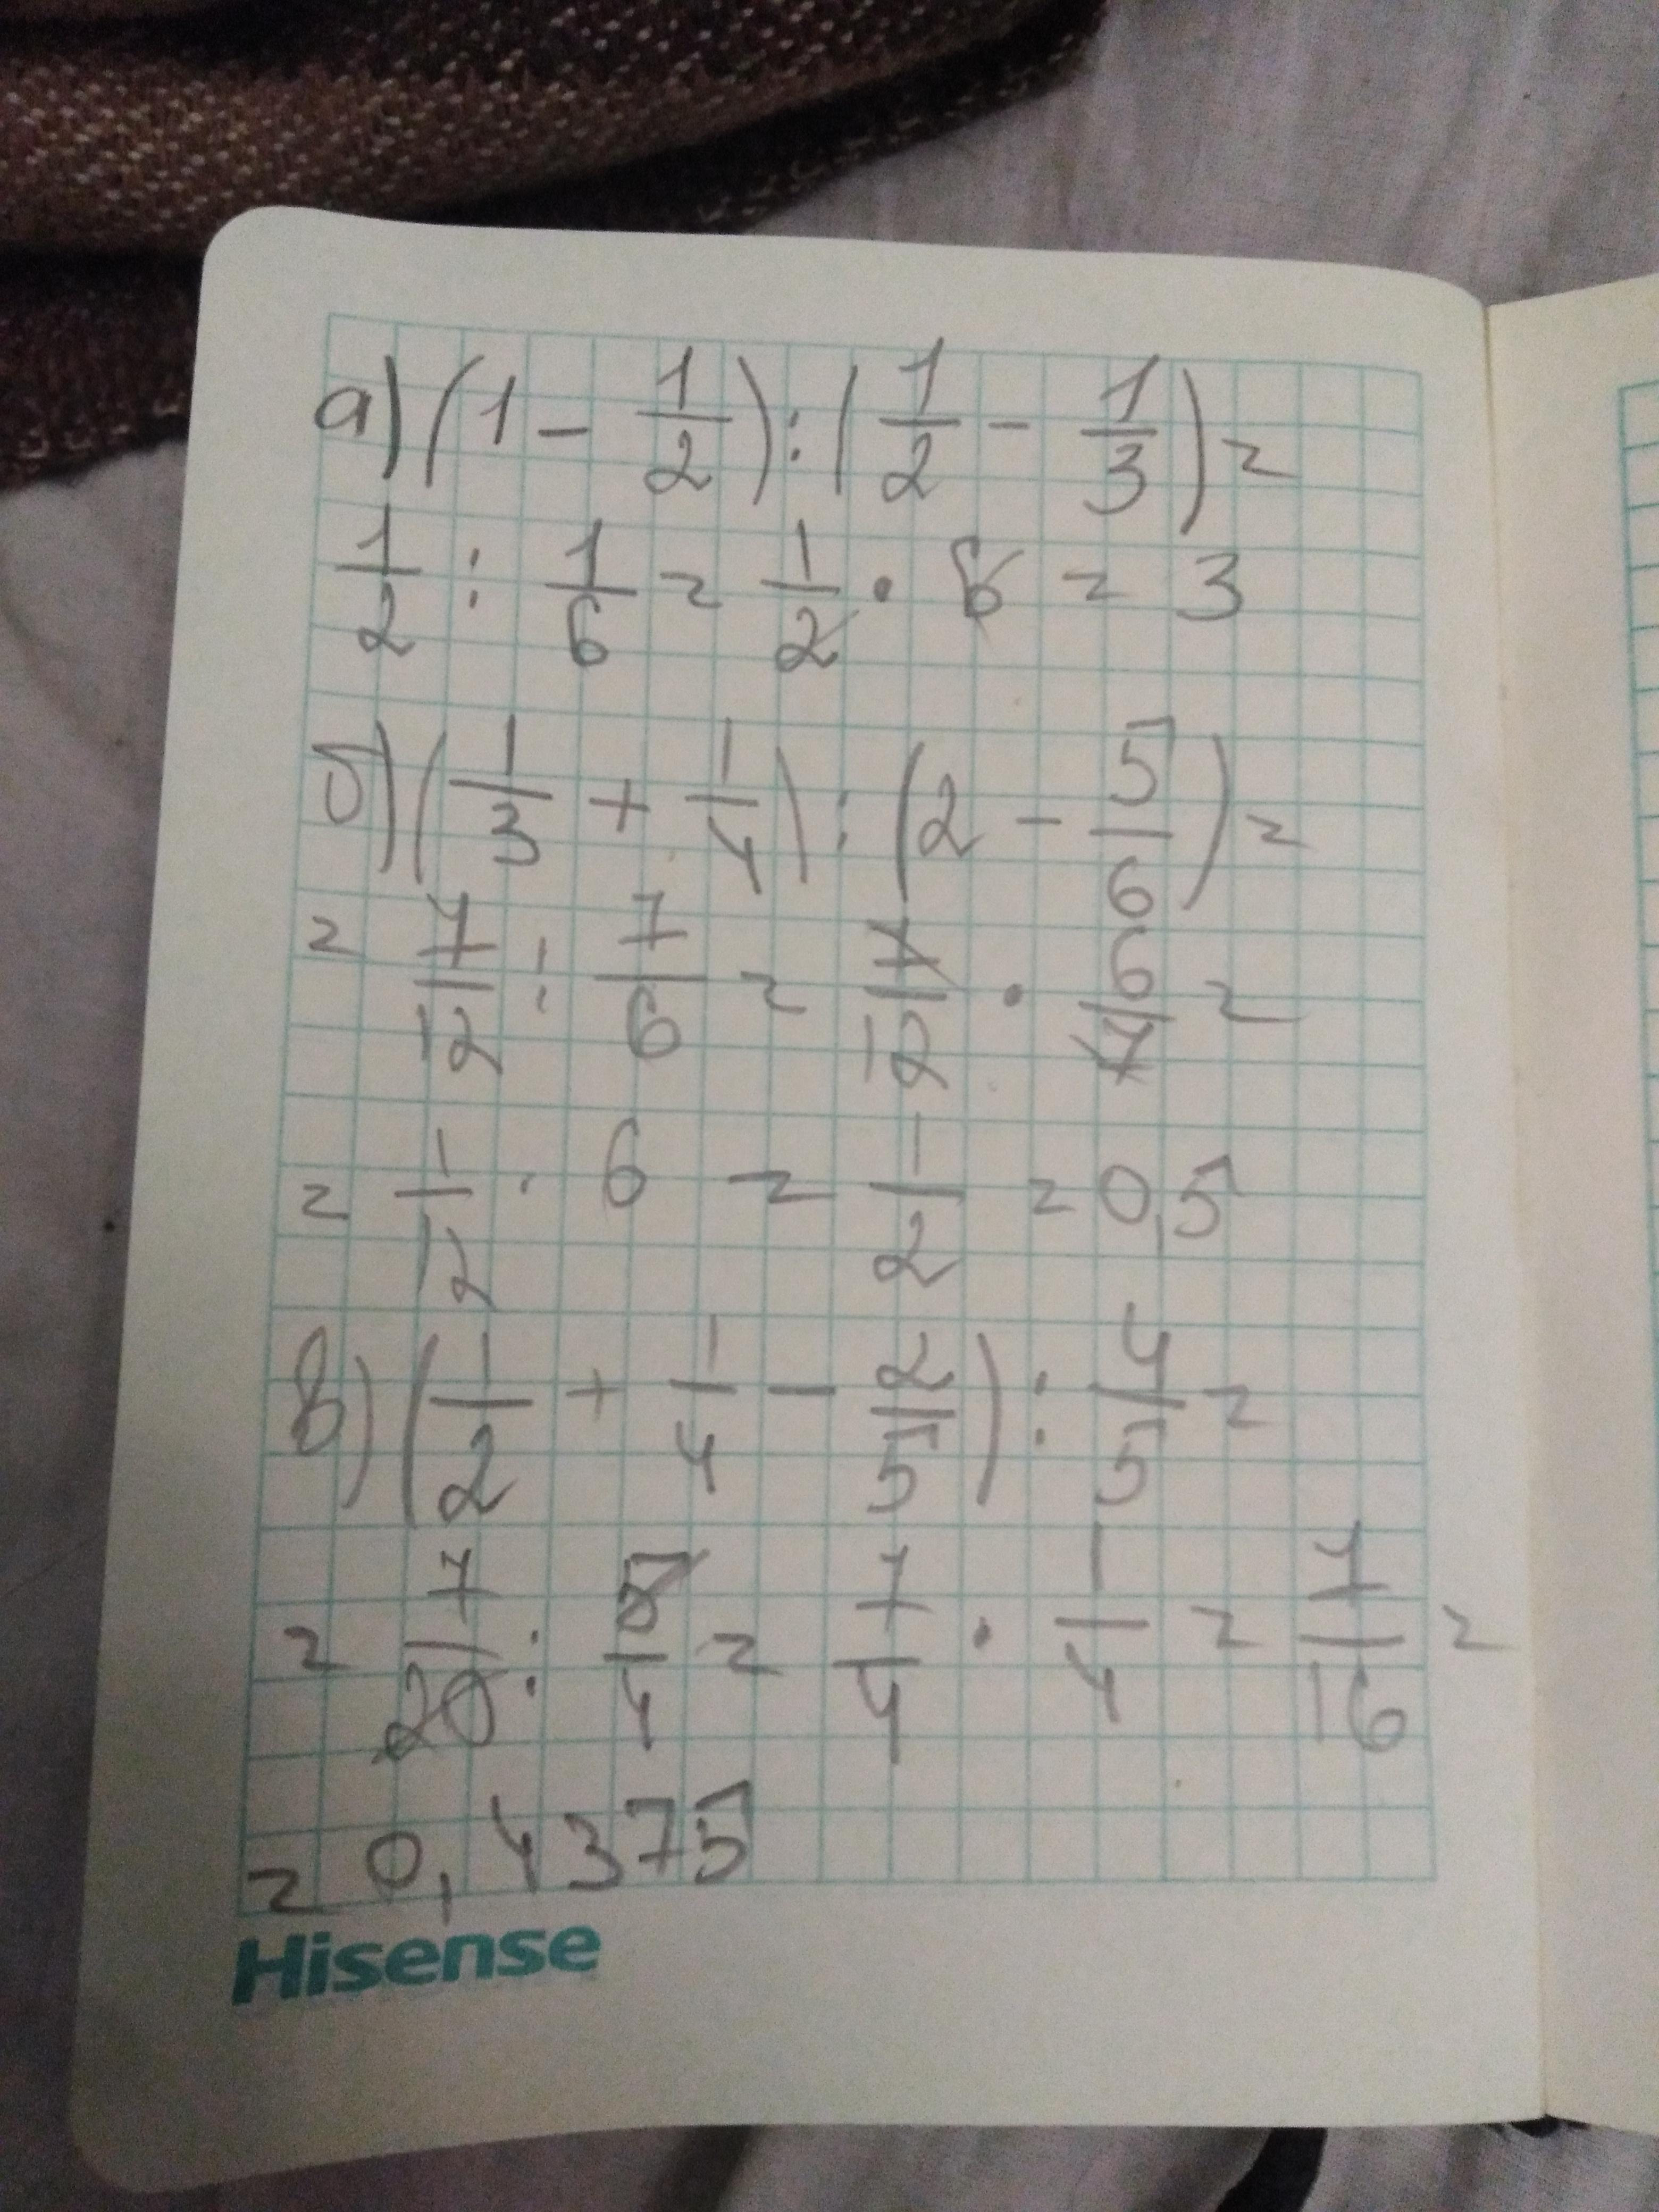 а) (1 - 1/2) : (1/2 - 1/3) =
1/2 : 1/6 = 1/2 · 6 = 3
б) (1/3 + 1/4) : (2 - 5/6) =
= 7/12 : 7/6 = 7/12 · 6/7 =
= 1/12 · 6 = 1/2 = 0,5
в) (1/2 + 1/4 - 2/5) : 4/5 =
= 7/20 : 5/4 = 7/4 · 1/4 = 7/16 =
= 0,4375
Hisense